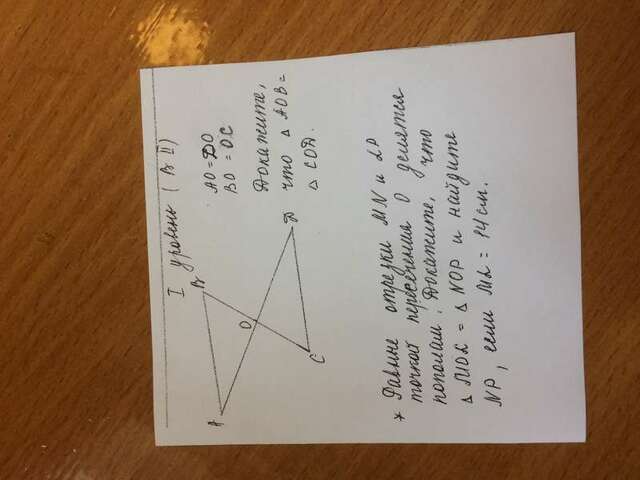 I уровень ( В II )
В
А
О
D
С
АО = DO
ВО = ОС
Докажите,
что △ АОВ =
△ COD.
* Равные отрезки MN и LP
точкой пересечения О делятся
пополам. Докажите, что
△ MOL = △ NOP и найдите
NP, если ML = 14 см.